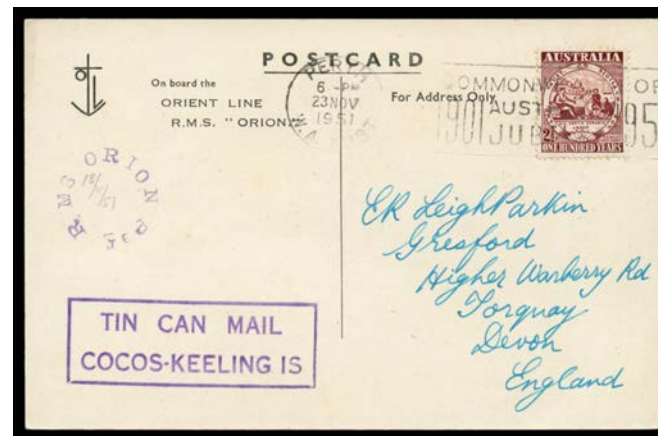 POSTCARD
On board the
ORIENT LINE
R.M.S. "ORION"
For Address Only
PERTH
6 -PM
23 NOV
1951
W.A.
COMMONWE OF
AUST
1901 JUB 195
AUSTRALIA
ONE HUNDRED YEARS
RMS ORION
18/11/51
TIN CAN MAIL
COCOS-KEELING IS
ER Leigh Parkin
Gresford
Higher Warberry Rd
Torquay
Devon
England